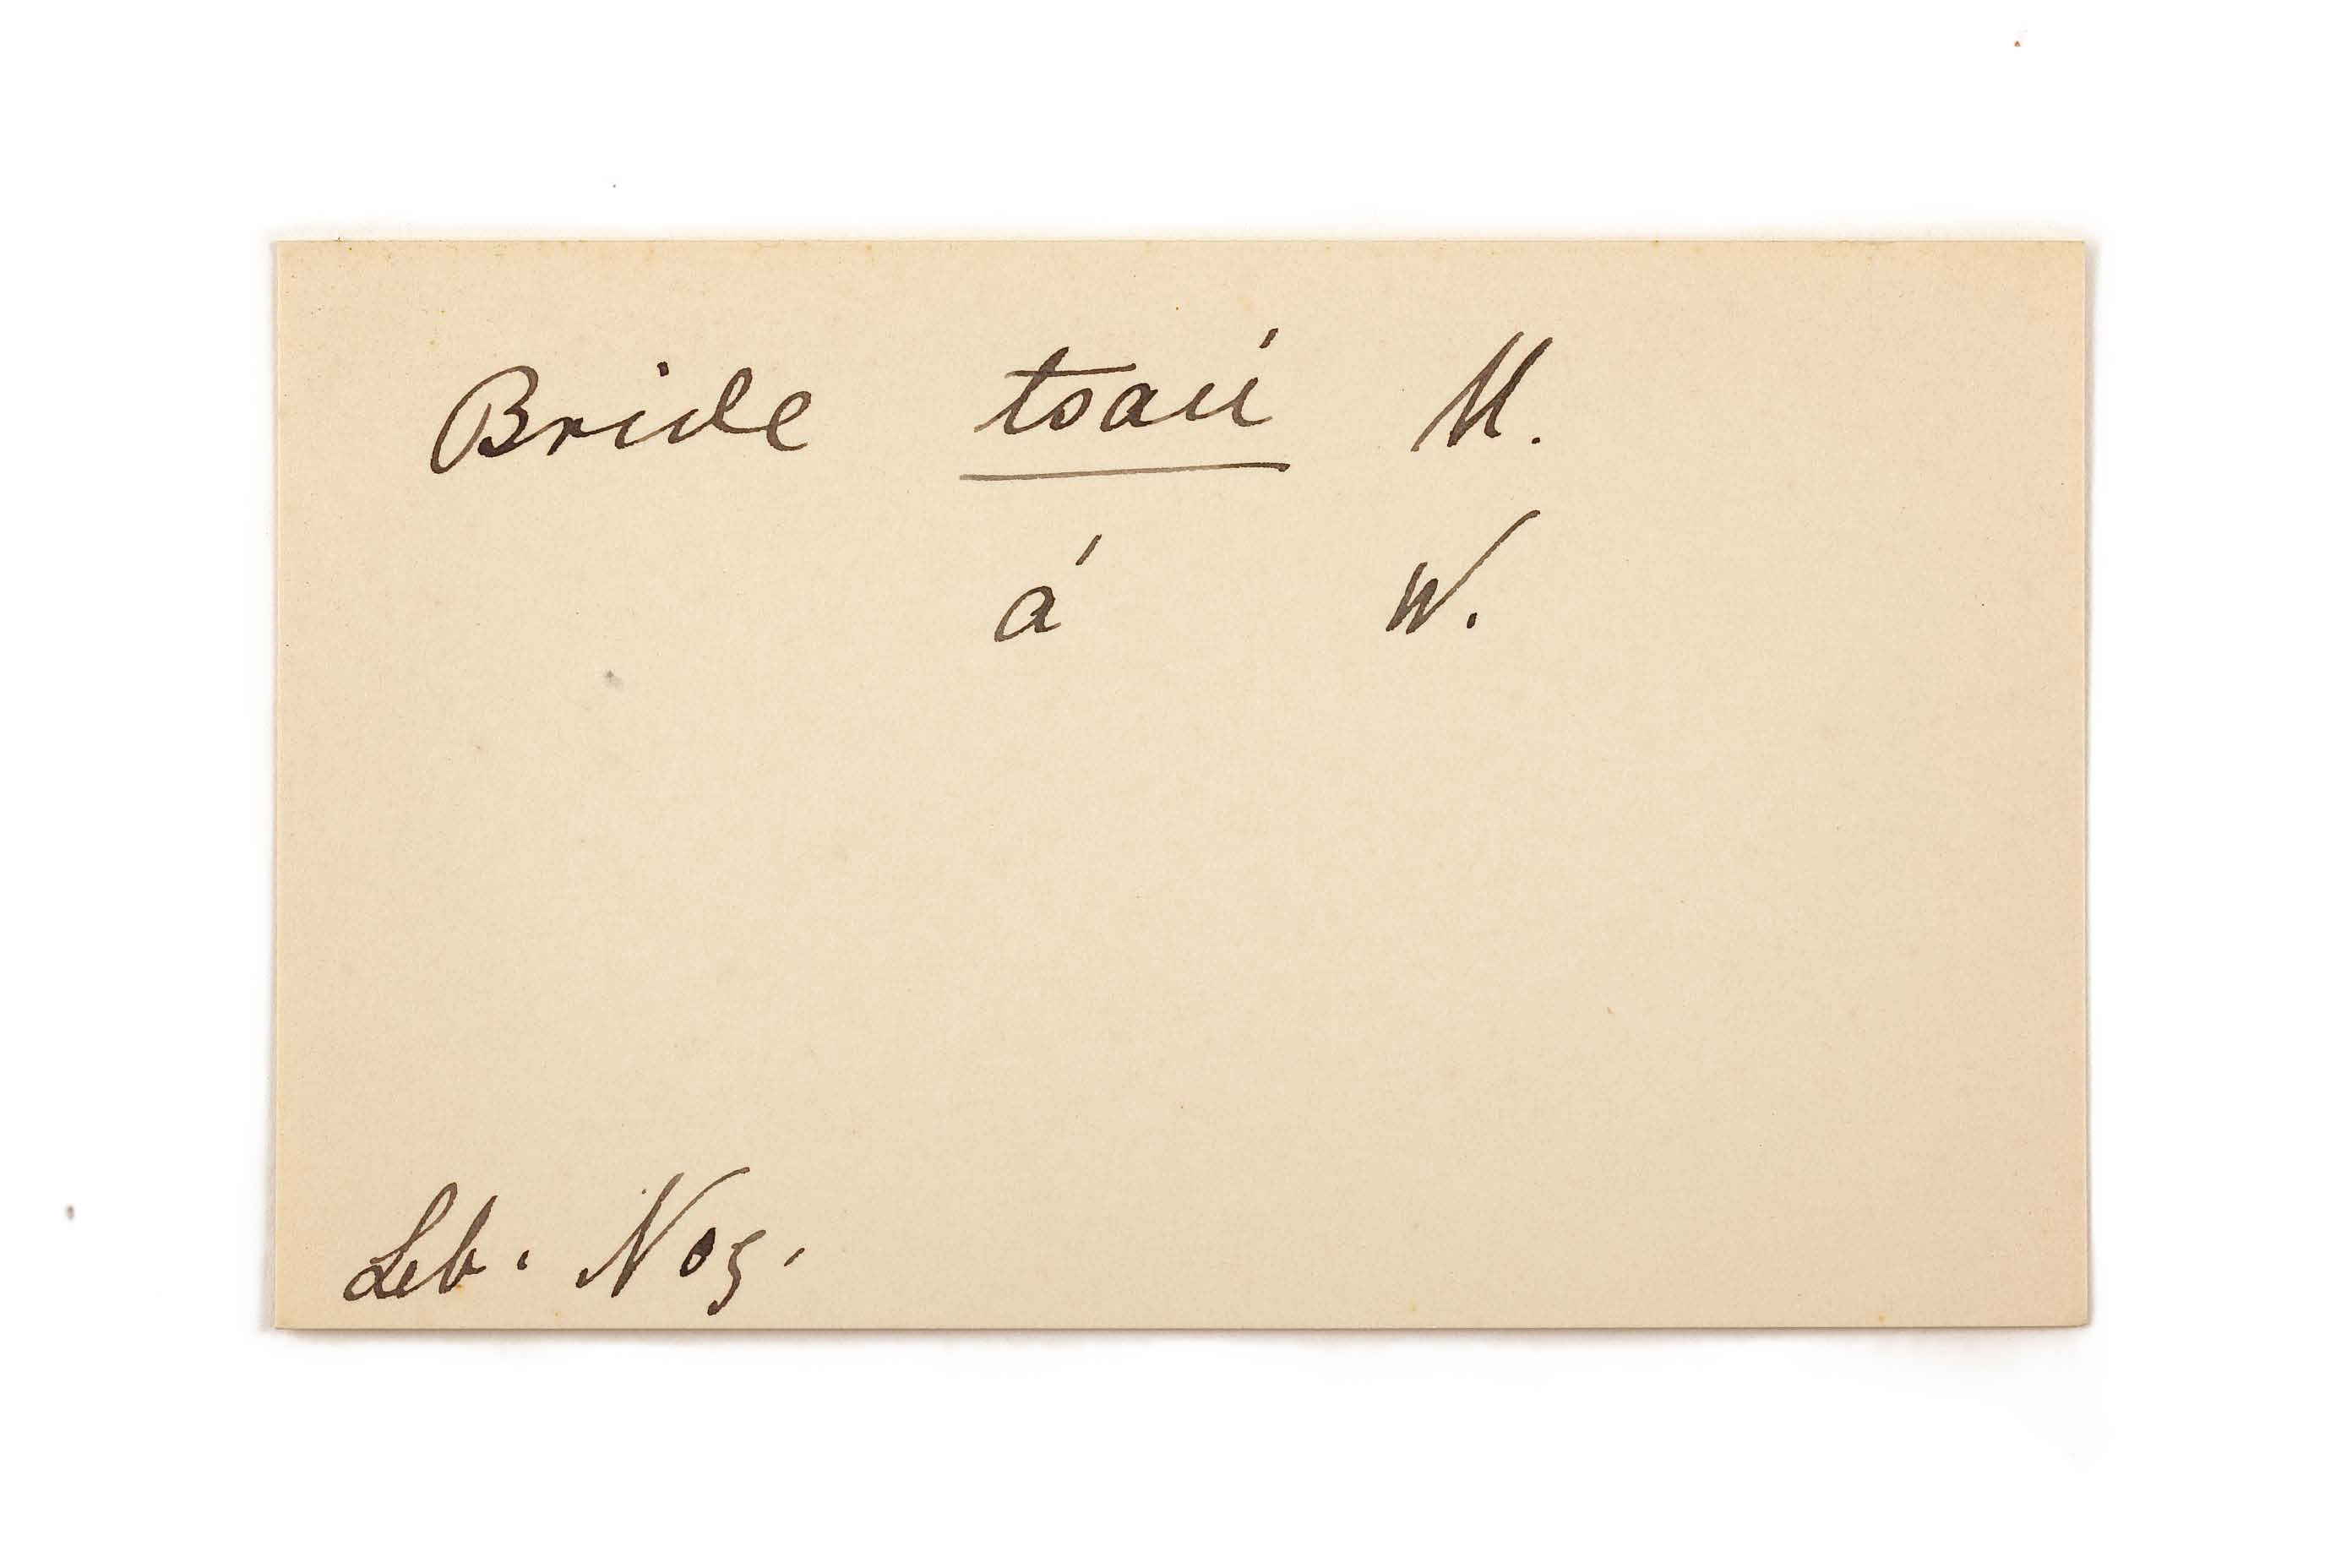 Bride tsaú M.
á W.
Leb. Nog.